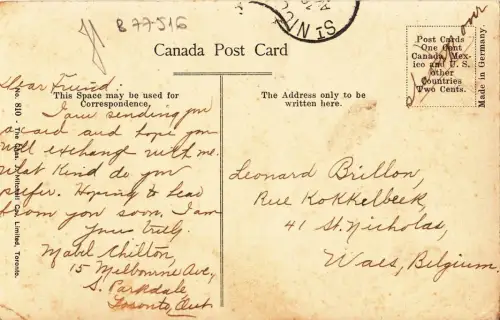 B 77516
ST NIC
Canada Post Card
Post Cards
One Cent
Canada, Mex-
ico and U. S.
other
Countries
Two Cents.
Made in Germany.
over
This Space may be used for
Correspondence.
The Address only to be
written here.
No. 810 - The Chas. J. Mitchell Co., Limited, Toronto.
Dear Friend:
I am sending you
a card and hope you
will exchange with me.
What Kind do you
prefer. Hoping to hear
from you soon. I am
Yours truly,
Mabel Chilton,
15 Melbourne Ave,
S. Parkdale
Toronto, Ont
Leonard Brillon,
Rue Kokkelbeek,
41 St. Nicholas,
Waes, Belgium.